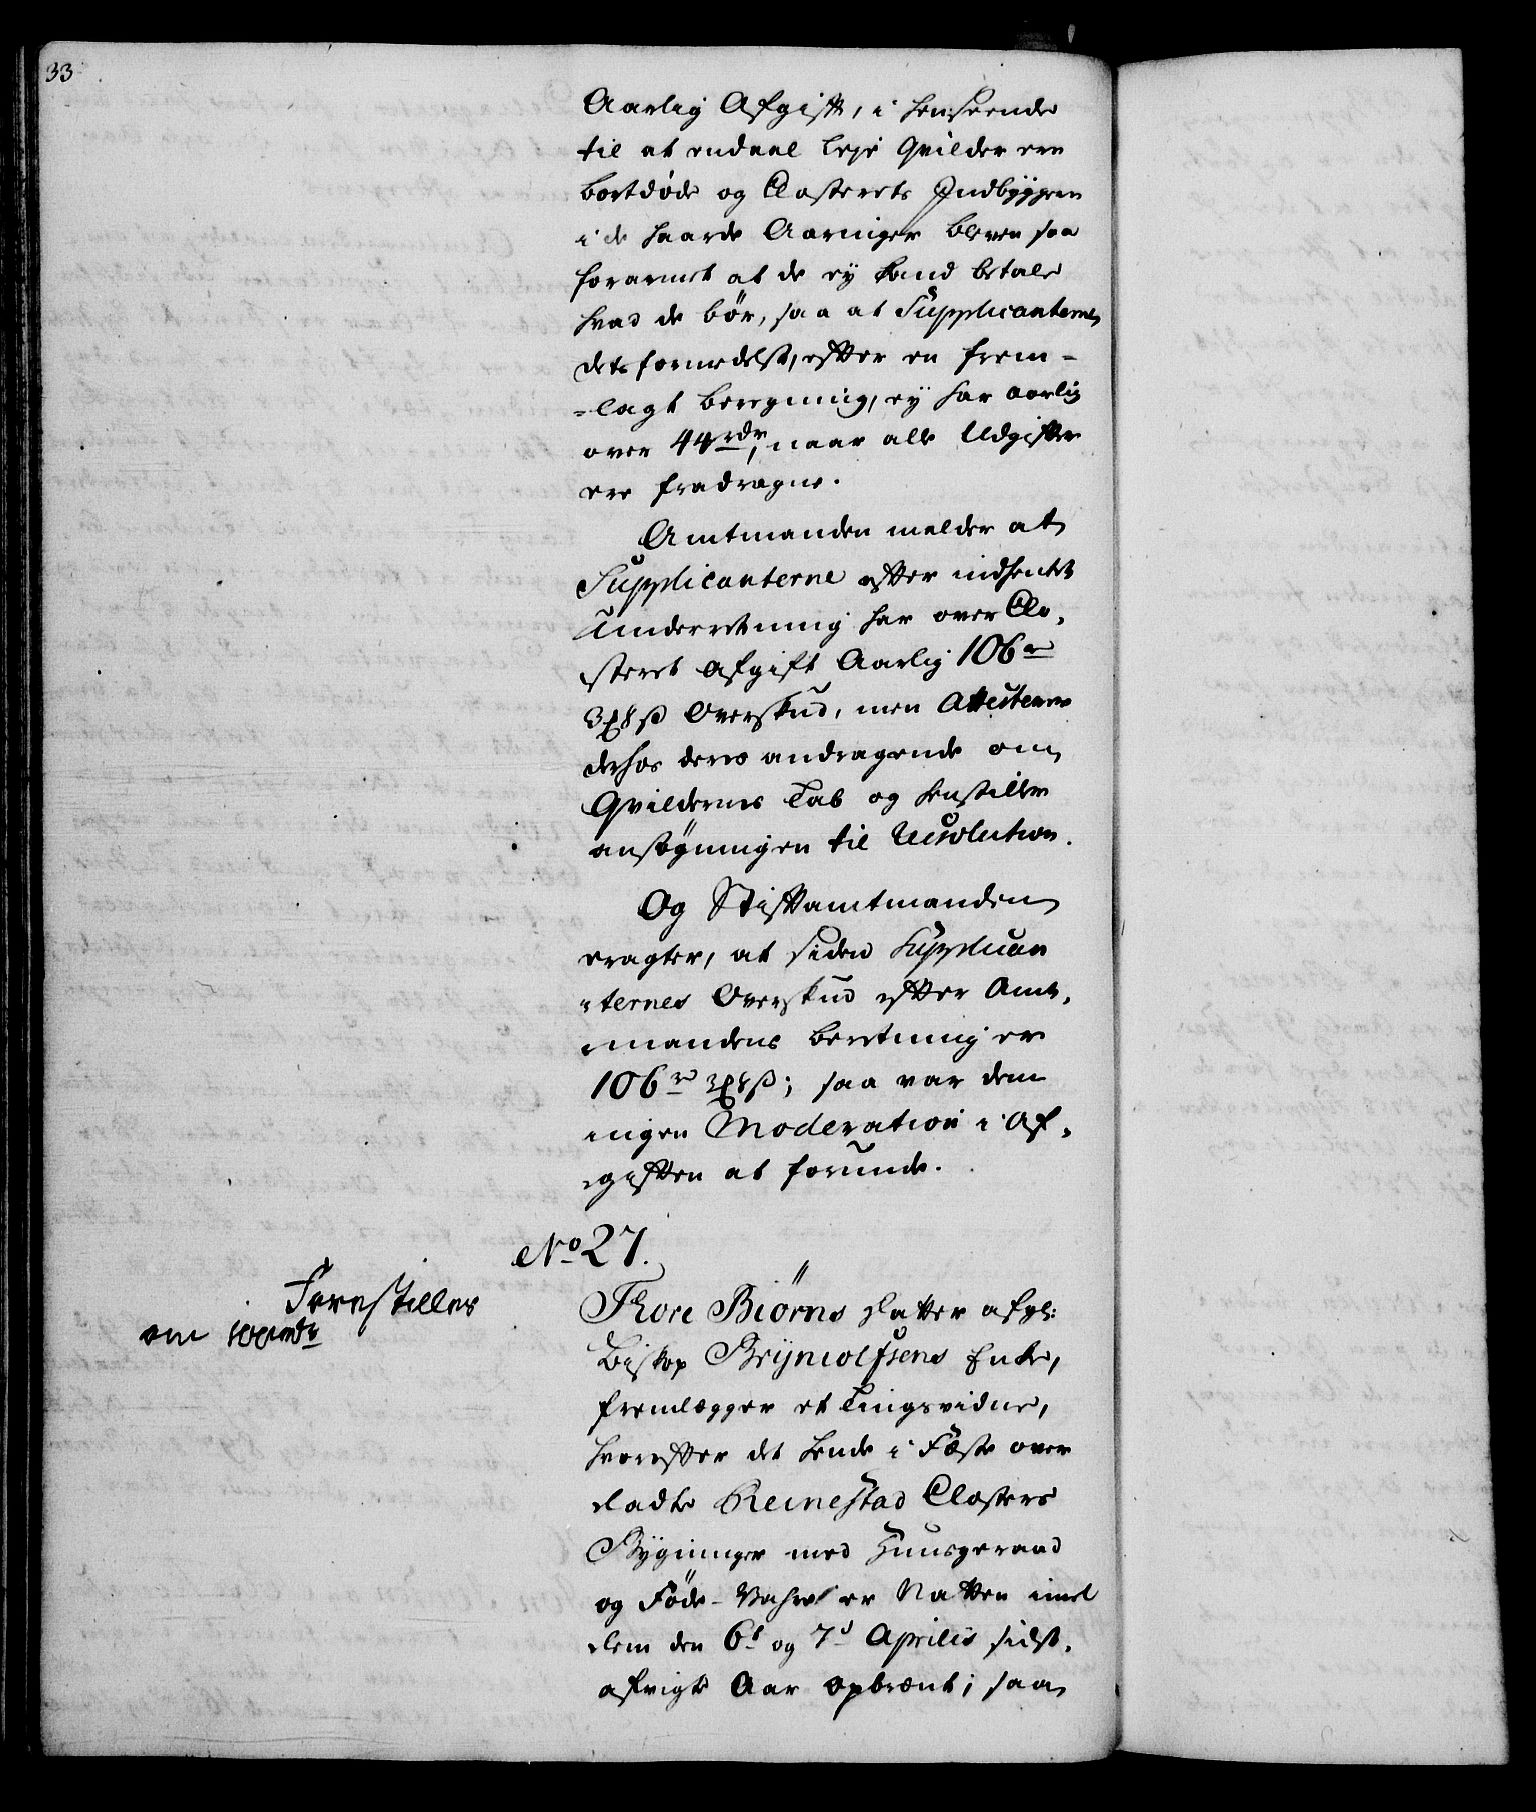 33
Aarlig Afgift, i henseende
til at endeel leje Qvilder ere
bortdøde og Closterets Indbyggere
i de haarde Aaringer bleven saa
forarmet at de ey kand betale
hvad de bör, saa at Supplicanterne
detsformedelst, efter en frem-
-lagt beregning, ey har aarlig
over 44 rdr, naar alle Udgifter
ere fradragne.
Amtmanden melder at
Supplicanterne efter indhentet
Underretning har over Clo-
steret afgift Aarlig 106 r
3 ß Overskud, men Attesterer
derhos deres andragende om
Qvildernes Tab og henstiller
ansøgningen til Resolution.
Og Stiftamtmanden
eragter, at siden Supplican
-ternes Overskud efter Amt-
-mandens beretning er
106 r 3 ß; saa var dem
ingen Moderation i Af-
-giften at forunde.
No 27.
Forestilles
om
Thore Biörns Datter afgl:
Biskop Brÿniolfsens Enke,
fremlegger et Tingsvidne,
hvorefter det hende i Fæste over
-ladte Reinestad Closters
Bÿgninger med Huusgeraad
og Föde-Vahre er Natten imel
-lem den 6t og 7d Aprilis sidst-
afvigte Aar opbrænt; saa